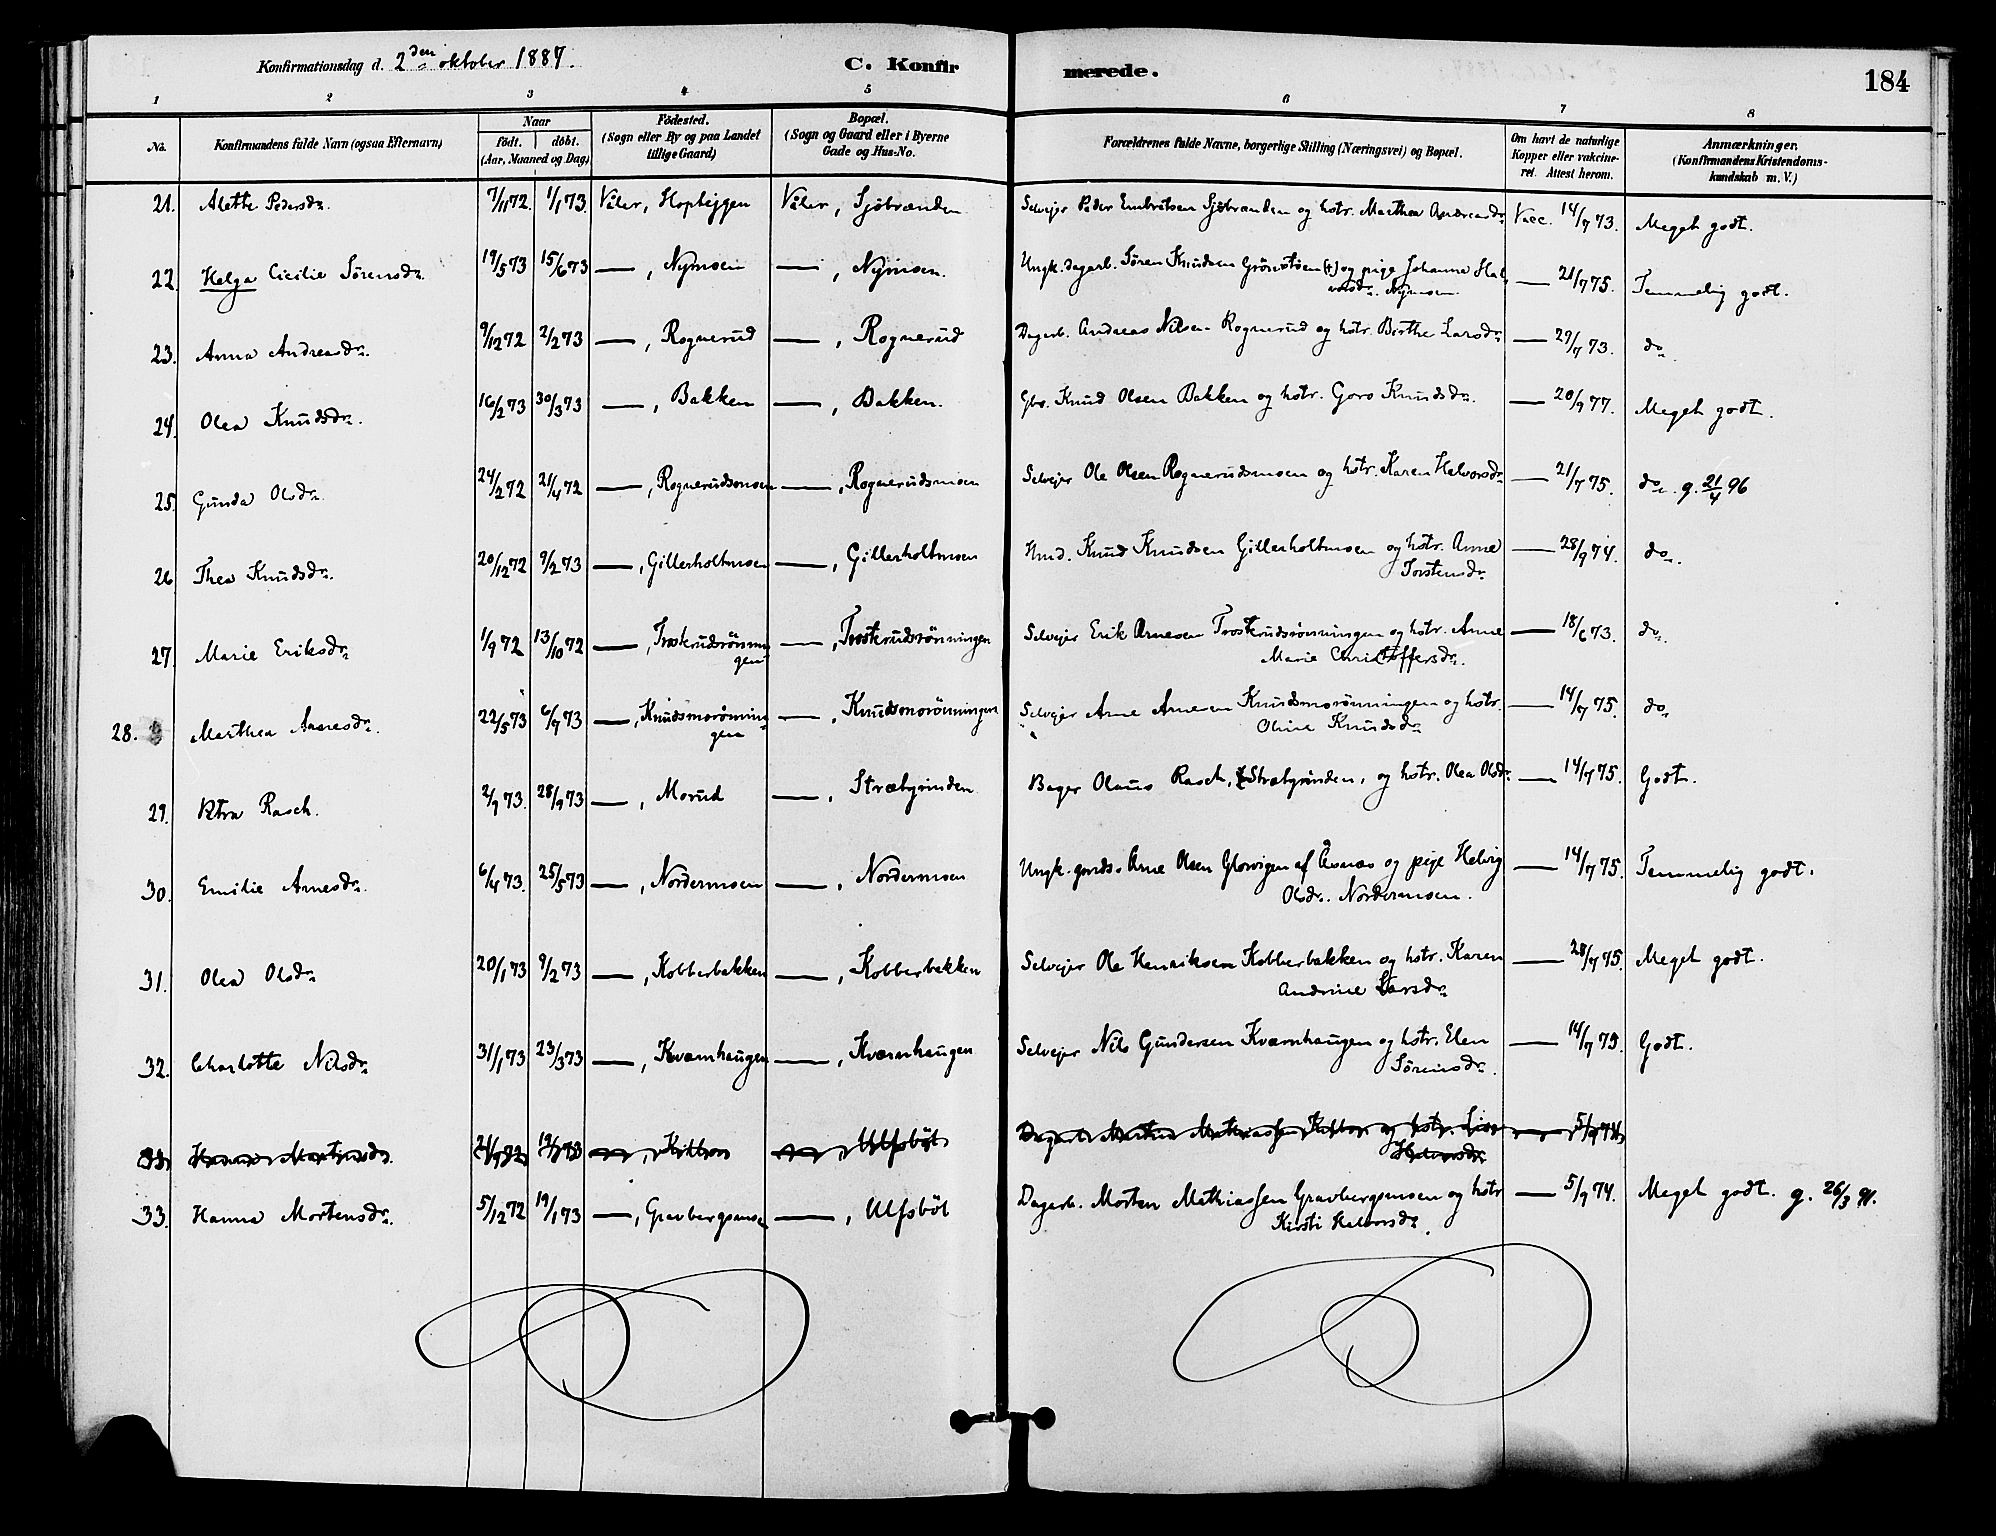 Konfirmationsdag d. 2den oktober 1887.
C. Konfirmerede.
184
1 2 3 4 5 6 7 8
No. Konfirmandens fulde Navn (ogsaa Efternavn) Naar födt. döbt. (Aar, Maaned og Dag) Födested. (Sogn eller By og paa Landet tillige Gaard) Bopæl. (Sogn og Gaard eller i Byerne Gade og Hus-No. Forældrenes fulde Navne, borgerlige Stilling (Næringsvei) og Bopæl. Om havt de naturlige Kopper eller vakcineret. Attest herom. Anmærkninger. (Konfirmandens Kristendomskundskab m. V.)
21. Alette Pedersdr. 7/11 72. 1/1 73. Våler, Våler, Sjöbranden Selvejer Peder Embretsen Sjöbranden og hstr. Marthea Andreasdr. Vacc. 14/7 73. Meget godt.
22. Helga Cicilie Sörensdr. 19/5 73 15/6 73 —, Nymoen —, Nymoen. Ungk. dagarb. Sören Knudsen (+) og pige Johanne Hal
vorsdr. Nymoen — 21/7 75. Temmelig godt.
23. Anna Andreasdr. 9/12 72 2/2 73 —, Rognerud —, Rognerud Dagarb. Andreas Nilsen Rognerud og hstr. Berthe Larsdr. — 29/7 73. do.
24. Olea Knudsdr. 16/2 73 30/3 73 —, Bakken —, Bakken. Gbr. Knud Olsen Bakken og hstr. Goro Knudsdr. — 20/9 77. Meget godt.
25. Gunda Olsdr. 24/2 72 21/4 72 —, Rognerudsmoen —, Rognerudsmoen Selvejer Ole Olsen Rognerudsmoen og hstr. Karen Halvorsdr. — 21/7 75. do. g. 21/4 96
26 Thea Knudsdr. 20/12 72 9/2 73 —, Gillerholtmoen —, Gillerholtmoen Knud Knudsen Gillerholtmoen og hstr. Anne
Torstensdr. — 28/9 74. do.
27. Marie Eriksdr. 1/9 72 13/10 72 —, Troskerudsrönnin
gen —, Troskerudsrönningen Selvejer Erik Arnesen Troskerudsrönningen og hstr. Anne
Marie Christoffersdr. — 18/6 73. do.
28. Marthea Arnesdr. 22/5 73 6/7 73 —, Knudsmorönnin
gen —, Knudsmorönningen Selvejer Arne Arnesen Knudsmorönningen og hstr.
Oline Knudsdr. — 14/7 75. do
29. Petra Rasch. 2/9 73. 28/9 73 —, Morud —, Strætgrinden Bager Olaus Rasch, Strætgrinden, og hstr. Olea Olsdr. — 14/7 75. Godt.
30. Emilie Arnesdr. 6/4 73. 25/5 73 —, Nordermoen —, Nordermoen Ungk. gmds. Arne Olsen Glorvigen af Åsnæs og pige Helvig
Olsdr. Nordermoen. — 14/7 75. Temmelig godt.
31. Olea Olsdr. 20/1 73 9/2 73 —, Kobberbakken —, Kobberbakken Selvejer Ole Henriksen Kobberbakken og hstr. Karen
Andrine Larsdr. — 28/7 75. Meget godt.
32. Charlotte Nilsdr. 31/1 73 23/3 73 —, Kværnhaugen —, Kværnhaugen Selvejer Nils Gundersen Kværnhaugen og hstr. Elen
Sörensdr. — 14/7 75. Godt.
33. Ulfsböl
33. Hanna Mortensdr. 5/12 72 19/1 73 —, Gravbergsmoen —, Ulfsböl Dagarb. Morten Mathiassen Gravbergsmoen og hstr
Kirsti Halvorsdr. — 5/9 74. Meget godt. g. 26/3 91.